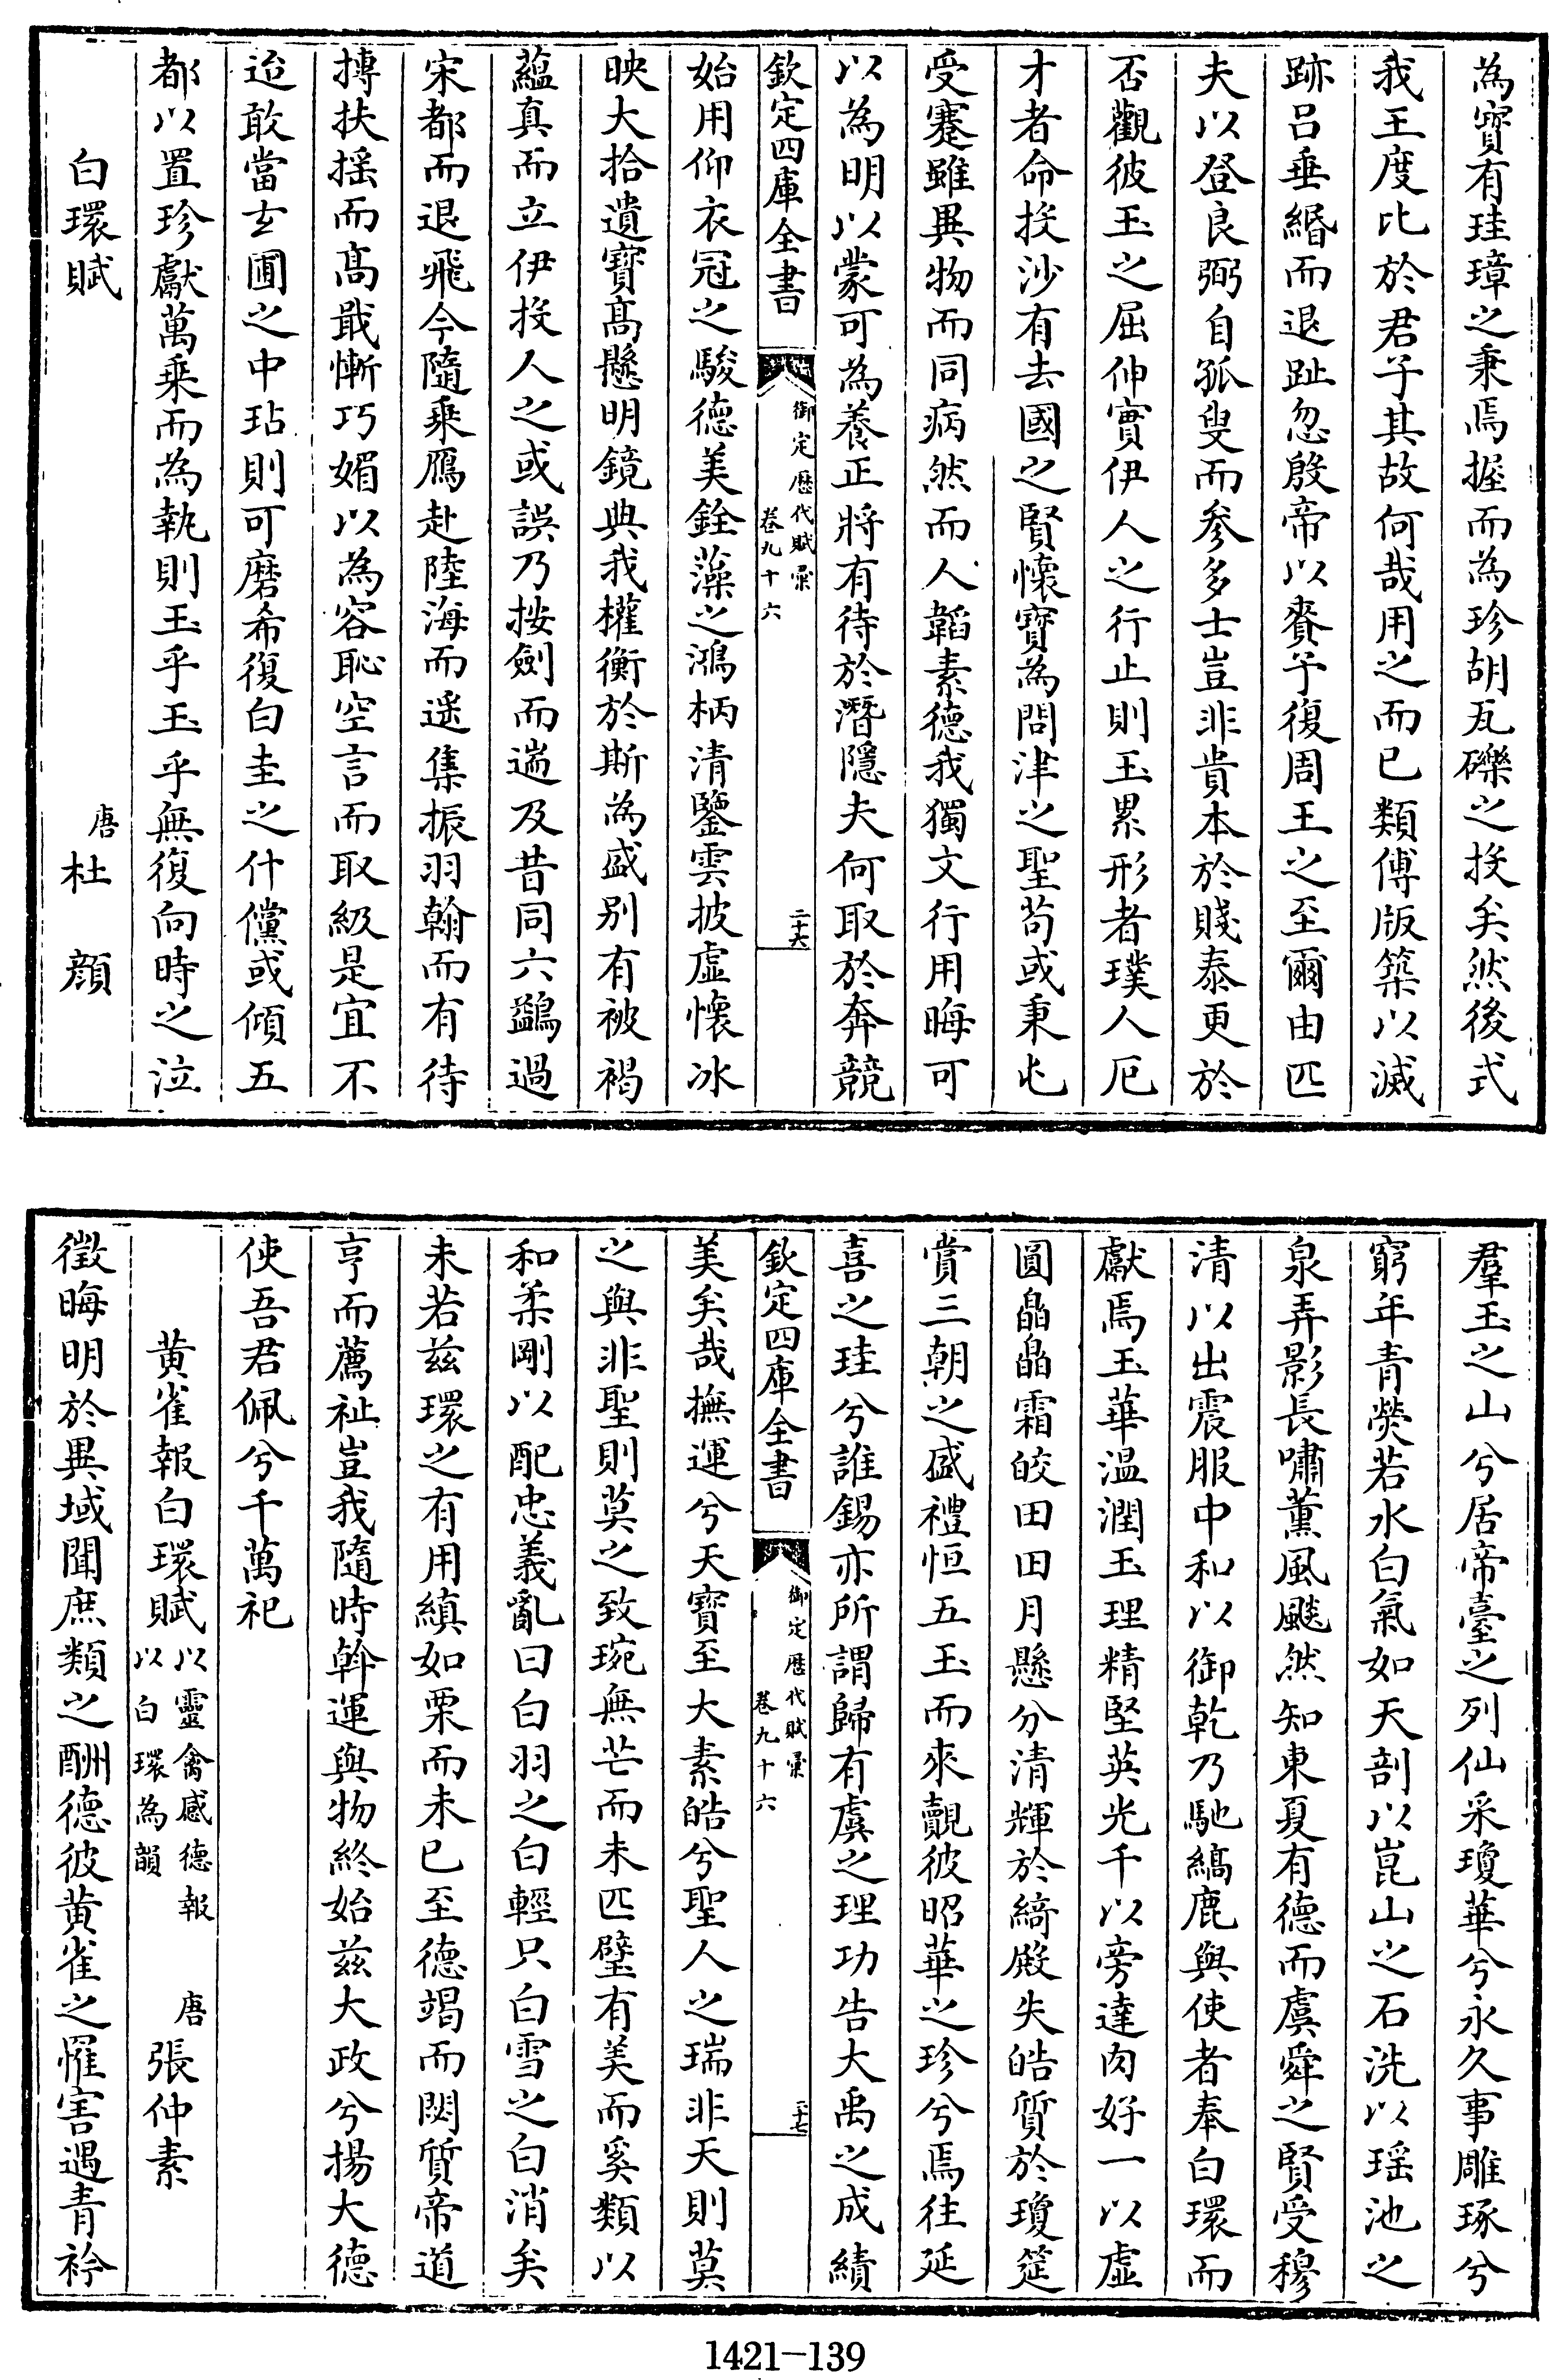 為寳有珪璋之秉焉握而為珍胡瓦礫之投矣然後式
我王度比於君子其故何哉用之而已類傅版築以滅
跡呂垂緡而退趾忽殷帝以賚予復周王之至爾由匹
夫以登良弼自孤叟而参多士豈非貴本於賤泰更於
否觀彼玉之屈伸實伊人之行止則玉累形者璞人厄
才者命投沙有去國之賢懷寳為問津之聖苟或秉屯
受蹇雖異物而同病然而人韜素德我獨文行用晦可
以為明以蒙可為養正將有待於潛隱夫何取於奔競
欽定四庫全書
御定歷代賦彙
卷九十六
二十六
始用仰衣冠之駿德美銓藻之鴻柄清鑒雲披虛懷冰
映大拾遺寳髙懸明鏡典我權衡於斯為盛别有被褐
蘊真而立伊投人之或誤乃按劍而遄及昔同六鷁過
宋都而退飛今隨乗鴈赴陸海而遥集振羽翰而有待
摶扶揺而髙戢慚巧媚以為容恥空言而取級是宜不
迨敢當玄圃之中玷則可磨希復白圭之什儻或傾五
都以置珍獻萬乗而為執則玉乎玉乎無復向時之泣
白環賦
唐 杜 顔
羣玉之山兮居帝臺之列仙采瓊華兮永久事雕琢兮
窮年青熒若水白氣如天剖以崑山之石洗以瑶池之
泉弄影長嘯薰風颷然知東夏有德而虞舜之賢受穆
清以出震服中和以御乾乃馳縞鹿與使者奉白環而
獻焉玉華温潤玉理精堅英光千以旁達肉好一以虛
圓皛皛霜皎田田月懸分清輝於綺殿失皓質於瓊筵
賞三朝之盛禮恒五玉而來覿彼昭華之珍兮焉往延
喜之珪兮誰錫亦所謂歸有虞之理功告大禹之成績
欽定四庫全書
御定歷代賦彙
卷九十六
二十七
美矣哉撫運兮天寳至大素皓兮聖人之瑞非天則莫
之與非聖則莫之致琬無芒而未匹璧有美而奚類以
和柔剛以配忠義亂曰白羽之白輕只白雪之白消矣
未若兹環之有用縝如栗而未已至德竭而閟質帝道
亨而薦祉豈我隨時斡運與物終始兹大政兮揚大德
使吾君佩兮千萬祀
黄雀報白環賦
以靈禽感德報
以白環為韻
唐 張仲素
徵晦明於異域聞庶類之酬德彼黄雀之罹害遇青衿
1421-139